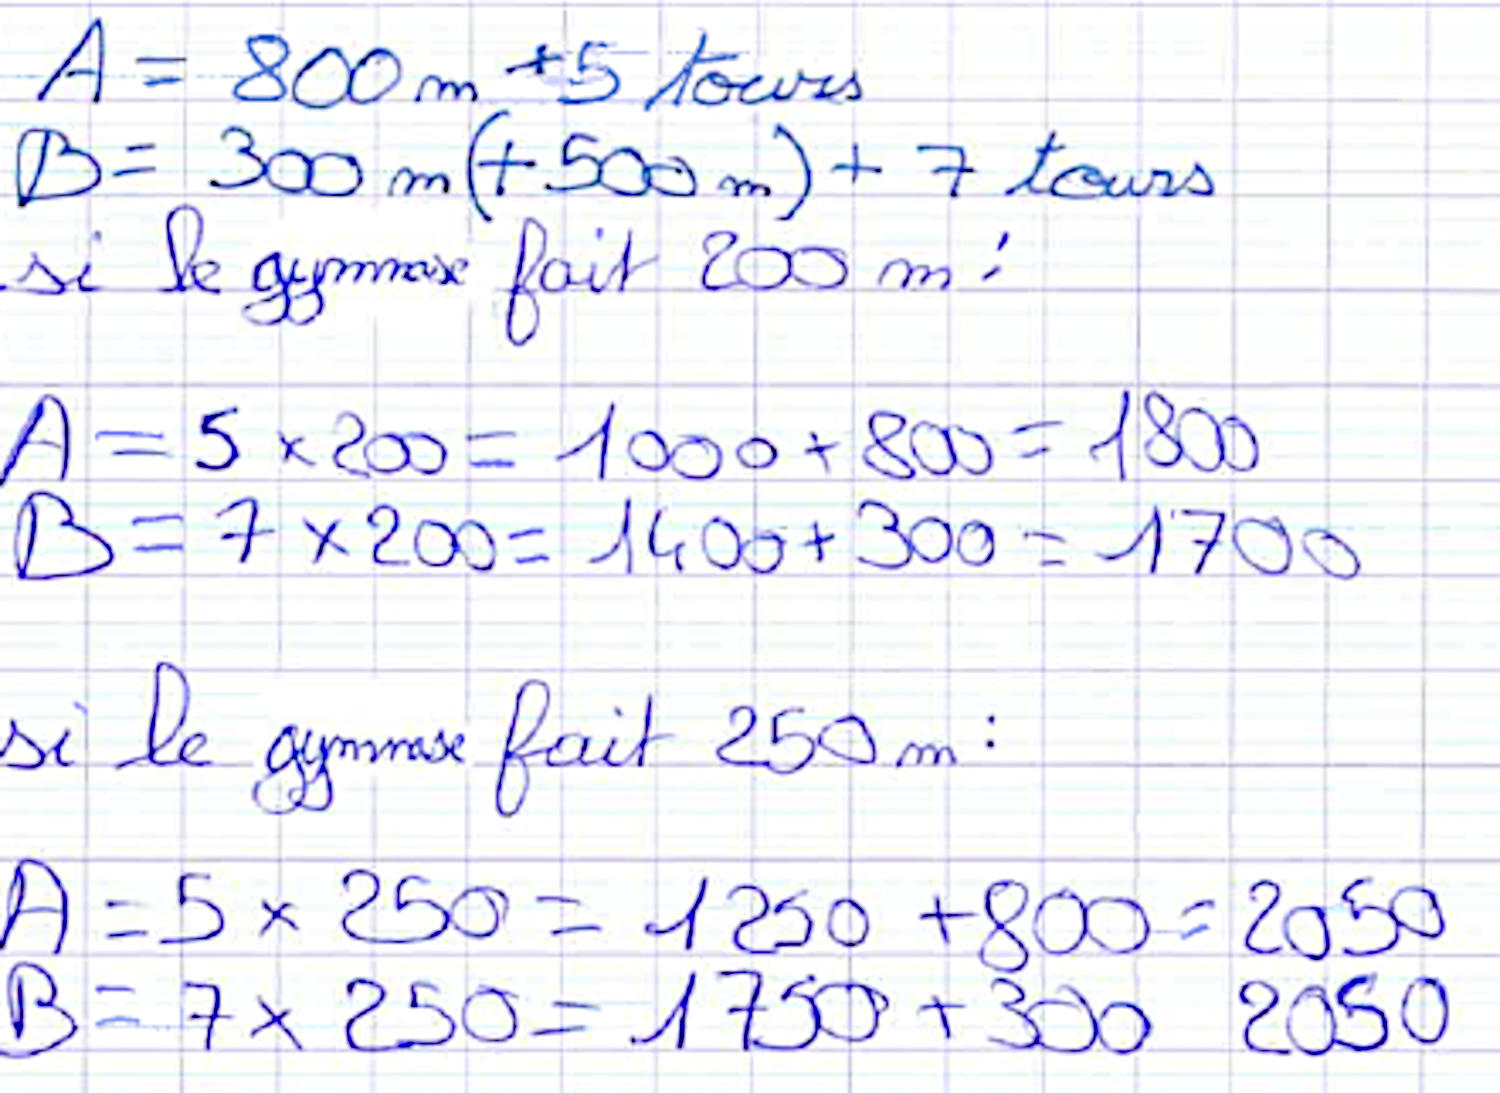 A = 800 m + 5 tours
B = 300 m (+ 500 m) + 7 tours
si le gymnase fait 200 m :
A = 5 x 200 = 1000 + 800 = 1800
B = 7 x 200 = 1400 + 300 = 1700
si le gymnase fait 250 m :
A = 5 x 250 = 1250 + 800 = 2050
B = 7 x 250 = 1750 + 300 2050